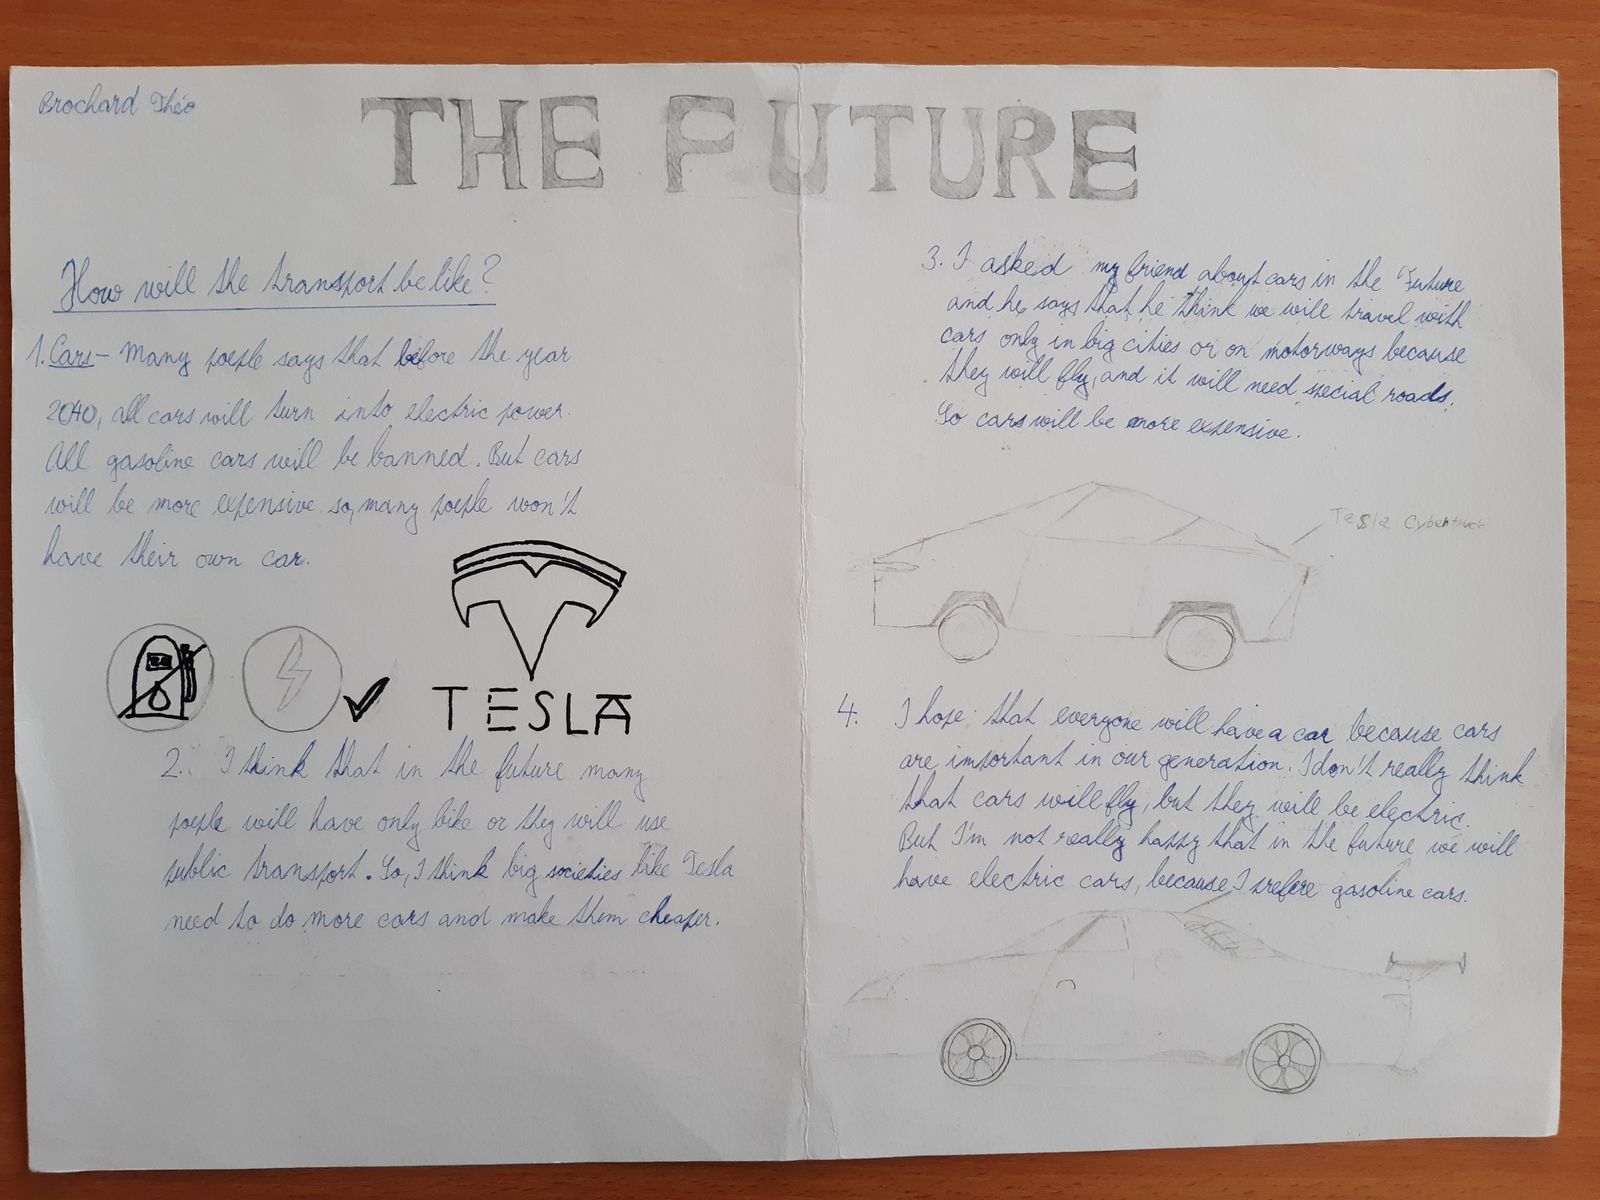 Brochard Théo
THE FUTURE
How will the transport be like?
1. Cars - Many poeple says that before the year
2040, all cars will turn into electric power.
All gasoline cars will be banned. But cars
will be more expensive so, many poeple won't
have their own car.
TESLA
2. I think that in the future many
poeple will have only bike or they will use
public transport. So, I think big societies like Tesla
need to do more cars and make them cheaper.
3. I asked my friend about cars in the Future
and he says that he think we will travel with
cars only in big cities or on motorways because
they will fly, and it will need special roads.
So cars will be more expensive.
Tesla Cybertruck
4. I hope that everyone will have a car because cars
are important in our generation. I don't really think
that cars will fly, but they will be electric.
But I'm not really happy that in the future we will
have electric cars, because I prefere gasoline cars.